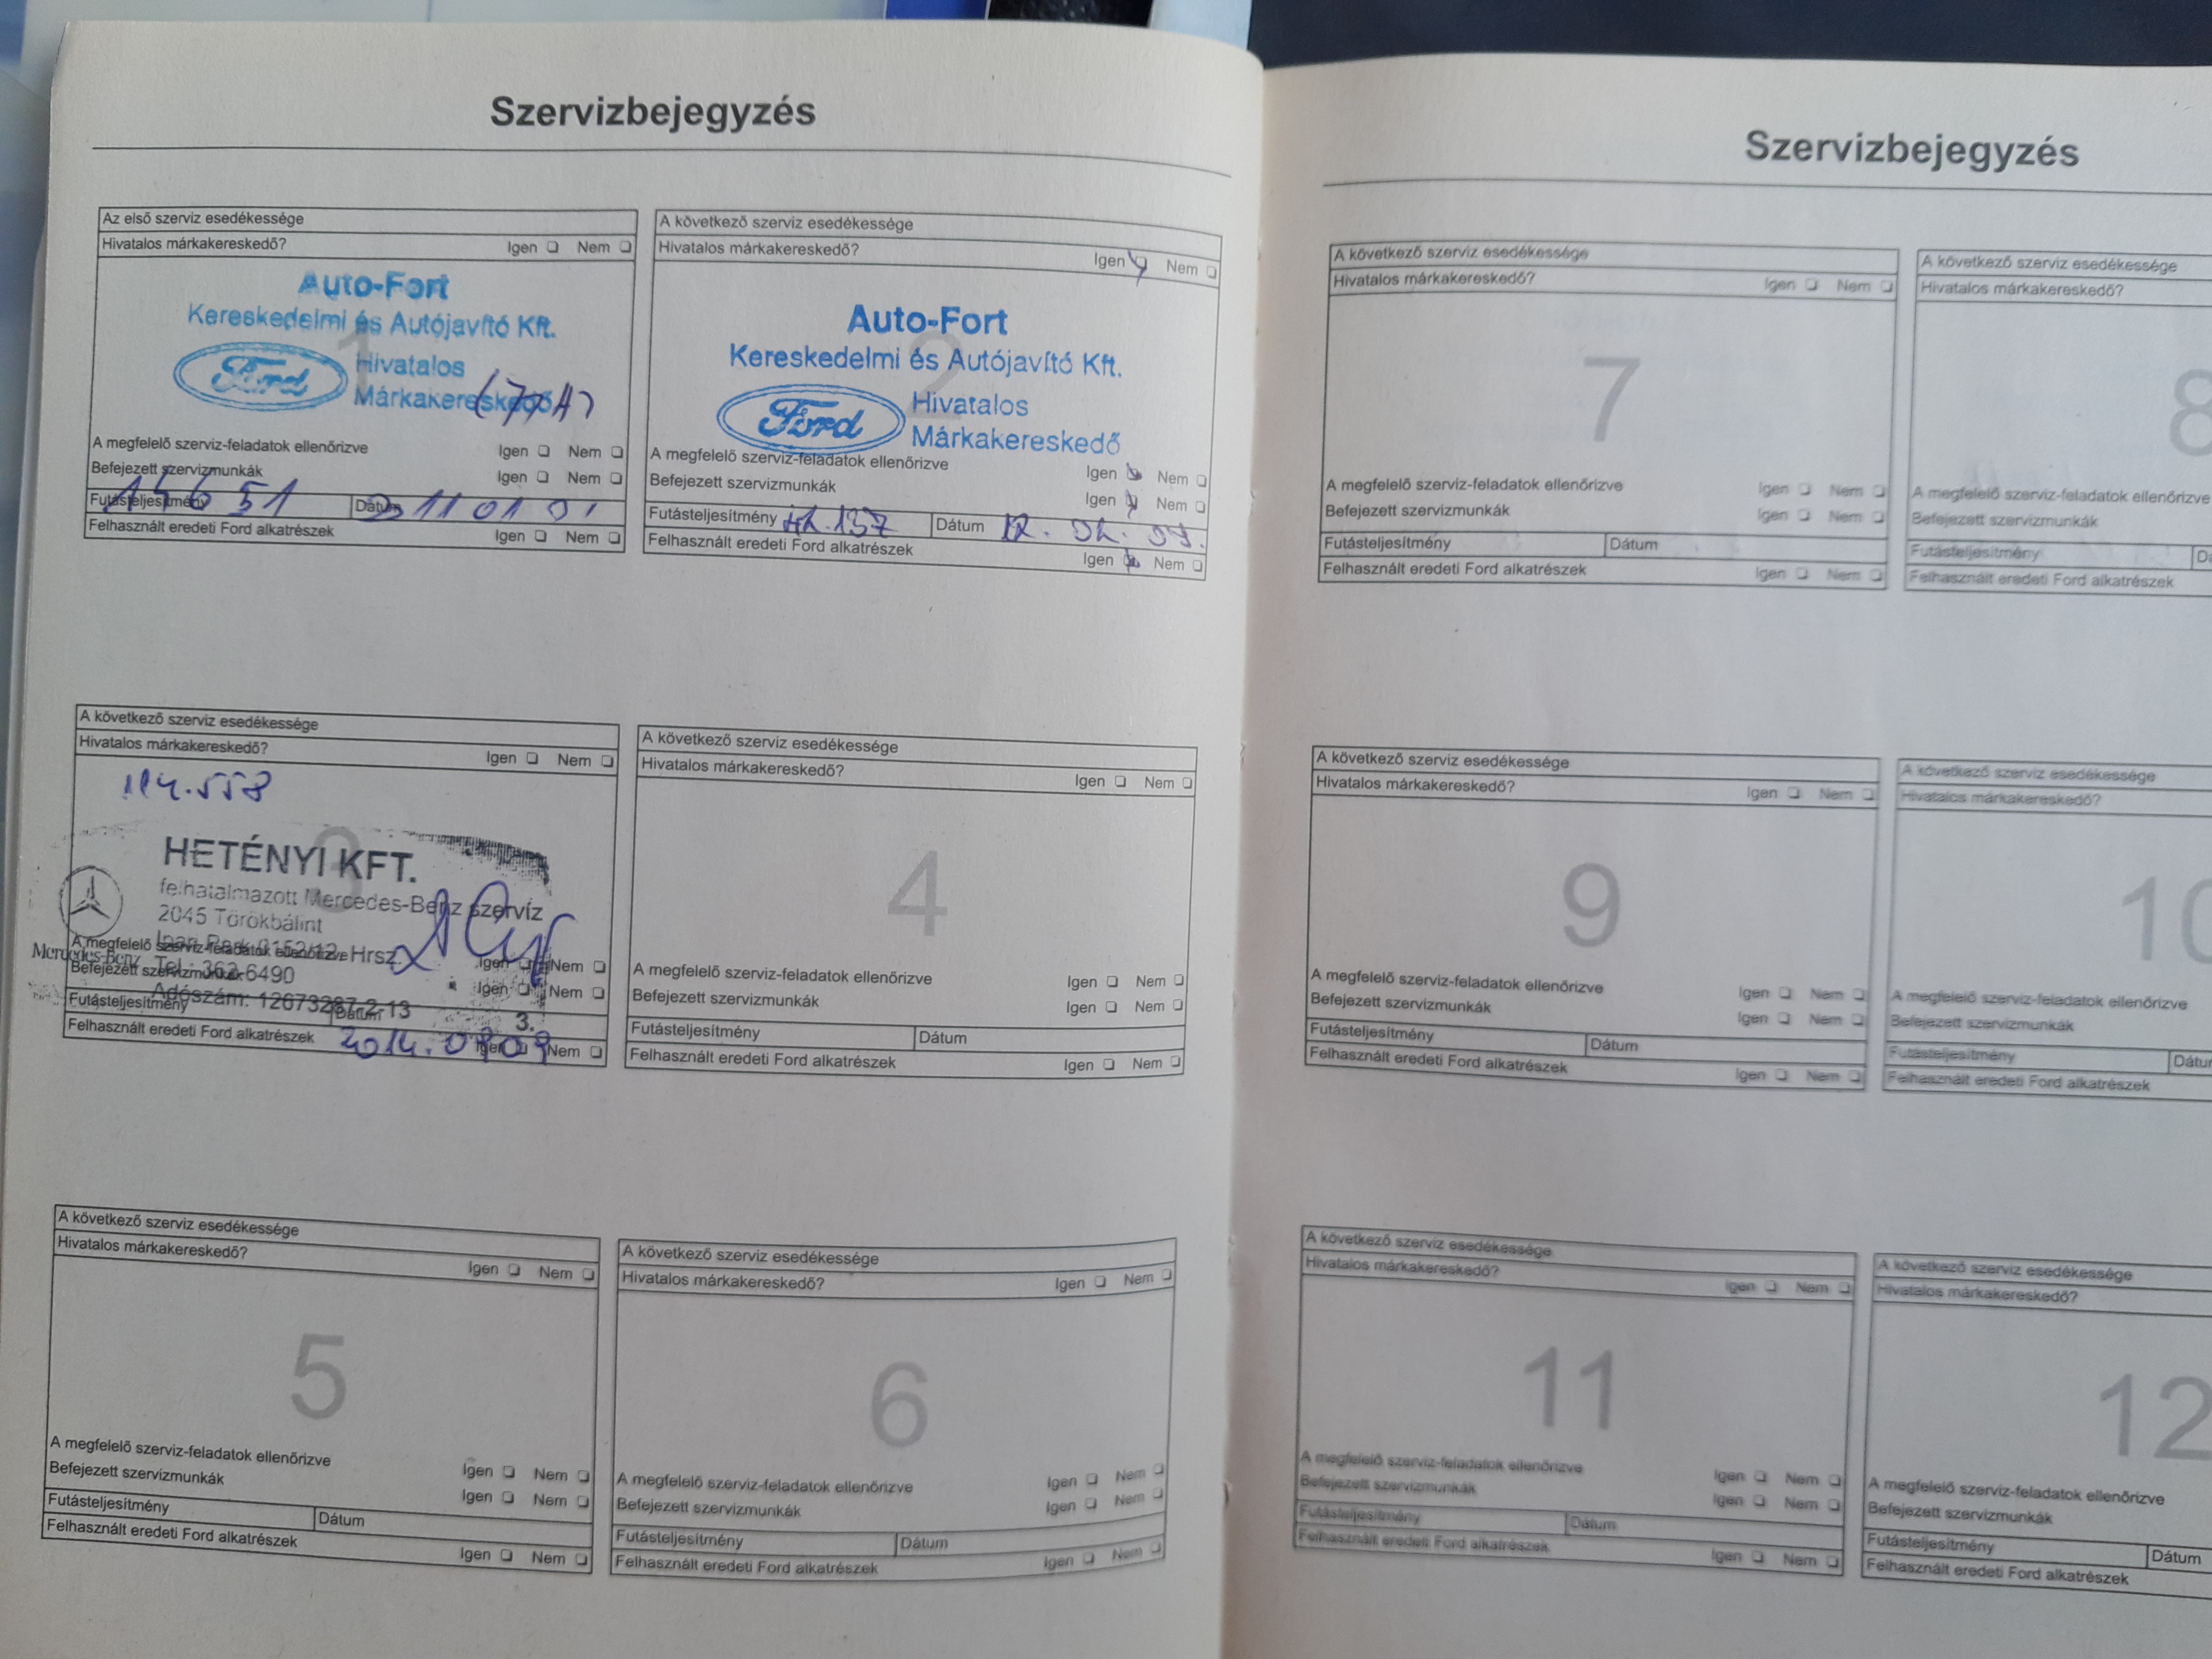 Szervizbejegyzés
Az első szerviz esedékessége
Hivatalos márkakereskedő? Igen Nem
1
Auto-Fort
Kereskedelmi és Autójavító Kft.
Ford Hivatalos
Márkakereskedő
A megfelelő szerviz-feladatok ellenőrizve Igen Nem
Befejezett szervizmunkák Igen Nem
Futásteljesítmény 15651 Dátum
Felhasznált eredeti Ford alkatrészek Igen Nem
A következő szerviz esedékessége
Hivatalos márkakereskedő? Igen Nem
2
Auto-Fort
Kereskedelmi és Autójavító Kft.
Ford Hivatalos
Márkakereskedő
A megfelelő szerviz-feladatok ellenőrizve Igen Nem
Befejezett szervizmunkák Igen Nem
Futásteljesítmény Dátum
Felhasznált eredeti Ford alkatrészek Igen Nem
A következő szerviz esedékessége
Hivatalos márkakereskedő? Igen Nem
114.558
3
HETÉNYI KFT.
felhatalmazott Mercedes-Benz szervíz
2045 Törökbálint
Ipari Park 0152/12. Hrsz.
Mercedes-Benz Tel.: 362-6490
Adószám: 12673287-2-13
3.
A megfelelő szerviz-feladatok ellenőrizve Igen Nem
Befejezett szervizmunkák Igen Nem
Futásteljesítmény Dátum
Felhasznált eredeti Ford alkatrészek 2014.0909 Igen Nem
A következő szerviz esedékessége
Hivatalos márkakereskedő? Igen Nem
4
A megfelelő szerviz-feladatok ellenőrizve Igen Nem
Befejezett szervizmunkák Igen Nem
Futásteljesítmény Dátum
Felhasznált eredeti Ford alkatrészek Igen Nem
A következő szerviz esedékessége
Hivatalos márkakereskedő? Igen Nem
5
A megfelelő szerviz-feladatok ellenőrizve Igen Nem
Befejezett szervizmunkák Igen Nem
Futásteljesítmény Dátum
Felhasznált eredeti Ford alkatrészek Igen Nem
A következő szerviz esedékessége
Hivatalos márkakereskedő? Igen Nem
6
A megfelelő szerviz-feladatok ellenőrizve Igen Nem
Befejezett szervizmunkák Igen Nem
Futásteljesítmény Dátum
Felhasznált eredeti Ford alkatrészek Igen Nem
Szervizbejegyzés
A következő szerviz esedékessége
Hivatalos márkakereskedő? Igen Nem
7
A megfelelő szerviz-feladatok ellenőrizve Igen Nem
Befejezett szervizmunkák Igen Nem
Futásteljesítmény Dátum
Felhasznált eredeti Ford alkatrészek Igen Nem
A következő szerviz esedékessége
Hivatalos márkakereskedő?
8
A megfelelő szerviz-feladatok ellenőrizve
Befejezett szervizmunkák
Futásteljesítmény
Felhasznált eredeti Ford alkatrészek
A következő szerviz esedékessége
Hivatalos márkakereskedő? Igen Nem
9
A megfelelő szerviz-feladatok ellenőrizve Igen Nem
Befejezett szervizmunkák Igen Nem
Futásteljesítmény Dátum
Felhasznált eredeti Ford alkatrészek Igen Nem
A következő szerviz esedékessége
Hivatalos márkakereskedő?
10
A megfelelő szerviz-feladatok ellenőrizve
Befejezett szervizmunkák
Futásteljesítmény
Felhasznált eredeti Ford alkatrészek
A következő szerviz esedékessége
Hivatalos márkakereskedő? Igen Nem
11
A megfelelő szerviz-feladatok ellenőrizve Igen Nem
Befejezett szervizmunkák Igen Nem
Futásteljesítmény Dátum
Felhasznált eredeti Ford alkatrészek Igen Nem
A következő szerviz esedékessége
Hivatalos márkakereskedő?
12
A megfelelő szerviz-feladatok ellenőrizve
Befejezett szervizmunkák
Futásteljesítmény Dátum
Felhasznált eredeti Ford alkatrészek